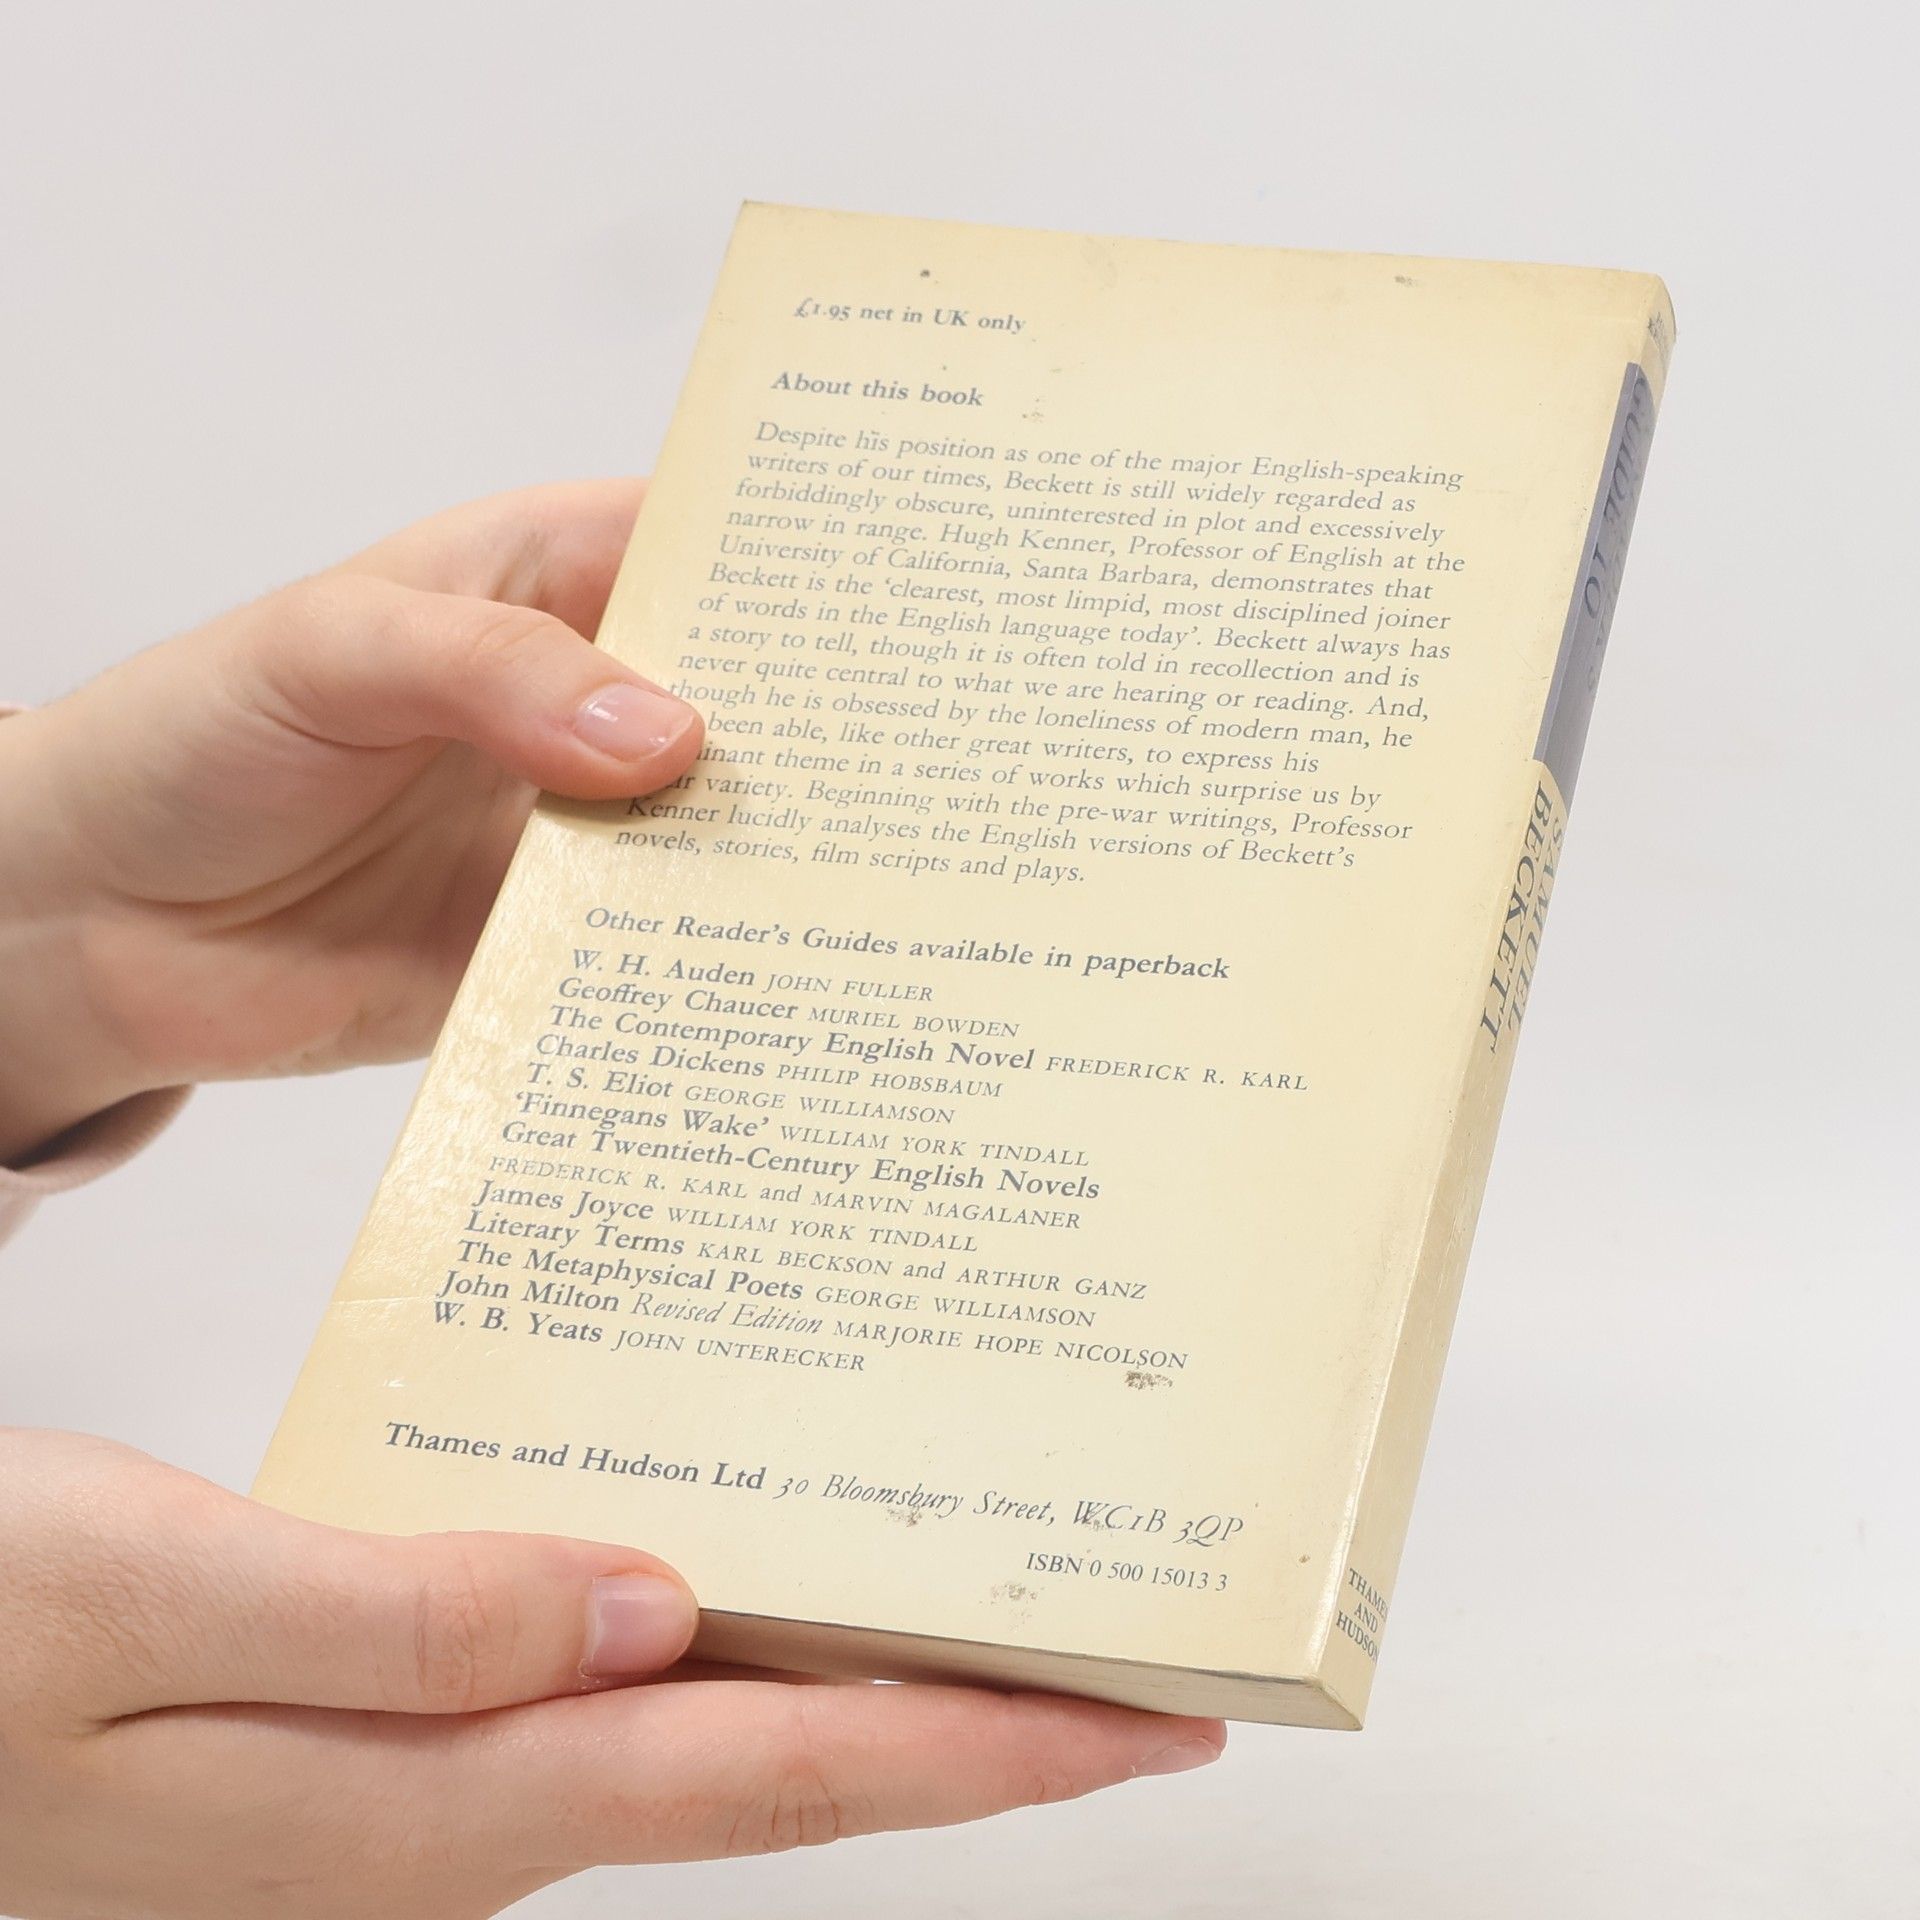 £1.95 net in UK only
About this book
Despite his position as one of the major English-speaking
writers of our times, Beckett is still widely regarded as
forbiddingly obscure, uninterested in plot and excessively
narrow in range. Hugh Kenner, Professor of English at the
University of California, Santa Barbara, demonstrates that
Beckett is the ‘clearest, most limpid, most disciplined joiner
of words in the English language today’. Beckett always has
a story to tell, though it is often told in recollection and is
never quite central to what we are hearing or reading. And,
though he is obsessed by the loneliness of modern man, he
been able, like other great writers, to express his
theme in a series of works which surprise us by
variety. Beginning with the pre-war writings, Professor
Kenner lucidly analyses the English versions of Beckett’s
novels, stories, film scripts and plays.
Other Reader’s Guides available in paperback
W. H. Auden JOHN FULLER
Geoffrey Chaucer MURIEL BOWDEN
The Contemporary English Novel FREDERICK R. KARL
Charles Dickens PHILIP HOBSBAUM
T. S. Eliot GEORGE WILLIAMSON
‘Finnegans Wake’ WILLIAM YORK TINDALL
Great Twentieth-Century English Novels
FREDERICK R. KARL and MARVIN MAGALANER
James Joyce WILLIAM YORK TINDALL
Literary Terms KARL BECKSON and ARTHUR GANZ
The Metaphysical Poets GEORGE WILLIAMSON
John Milton Revised Edition MARJORIE HOPE NICOLSON
W. B. Yeats JOHN UNTERECKER
Thames and Hudson Ltd 30 Bloomsbury Street, WC1B 3QP
ISBN 0 500 15013 3
GUIDE TO
SAMUEL
BECKETT
THAMES
AND
HUDSON